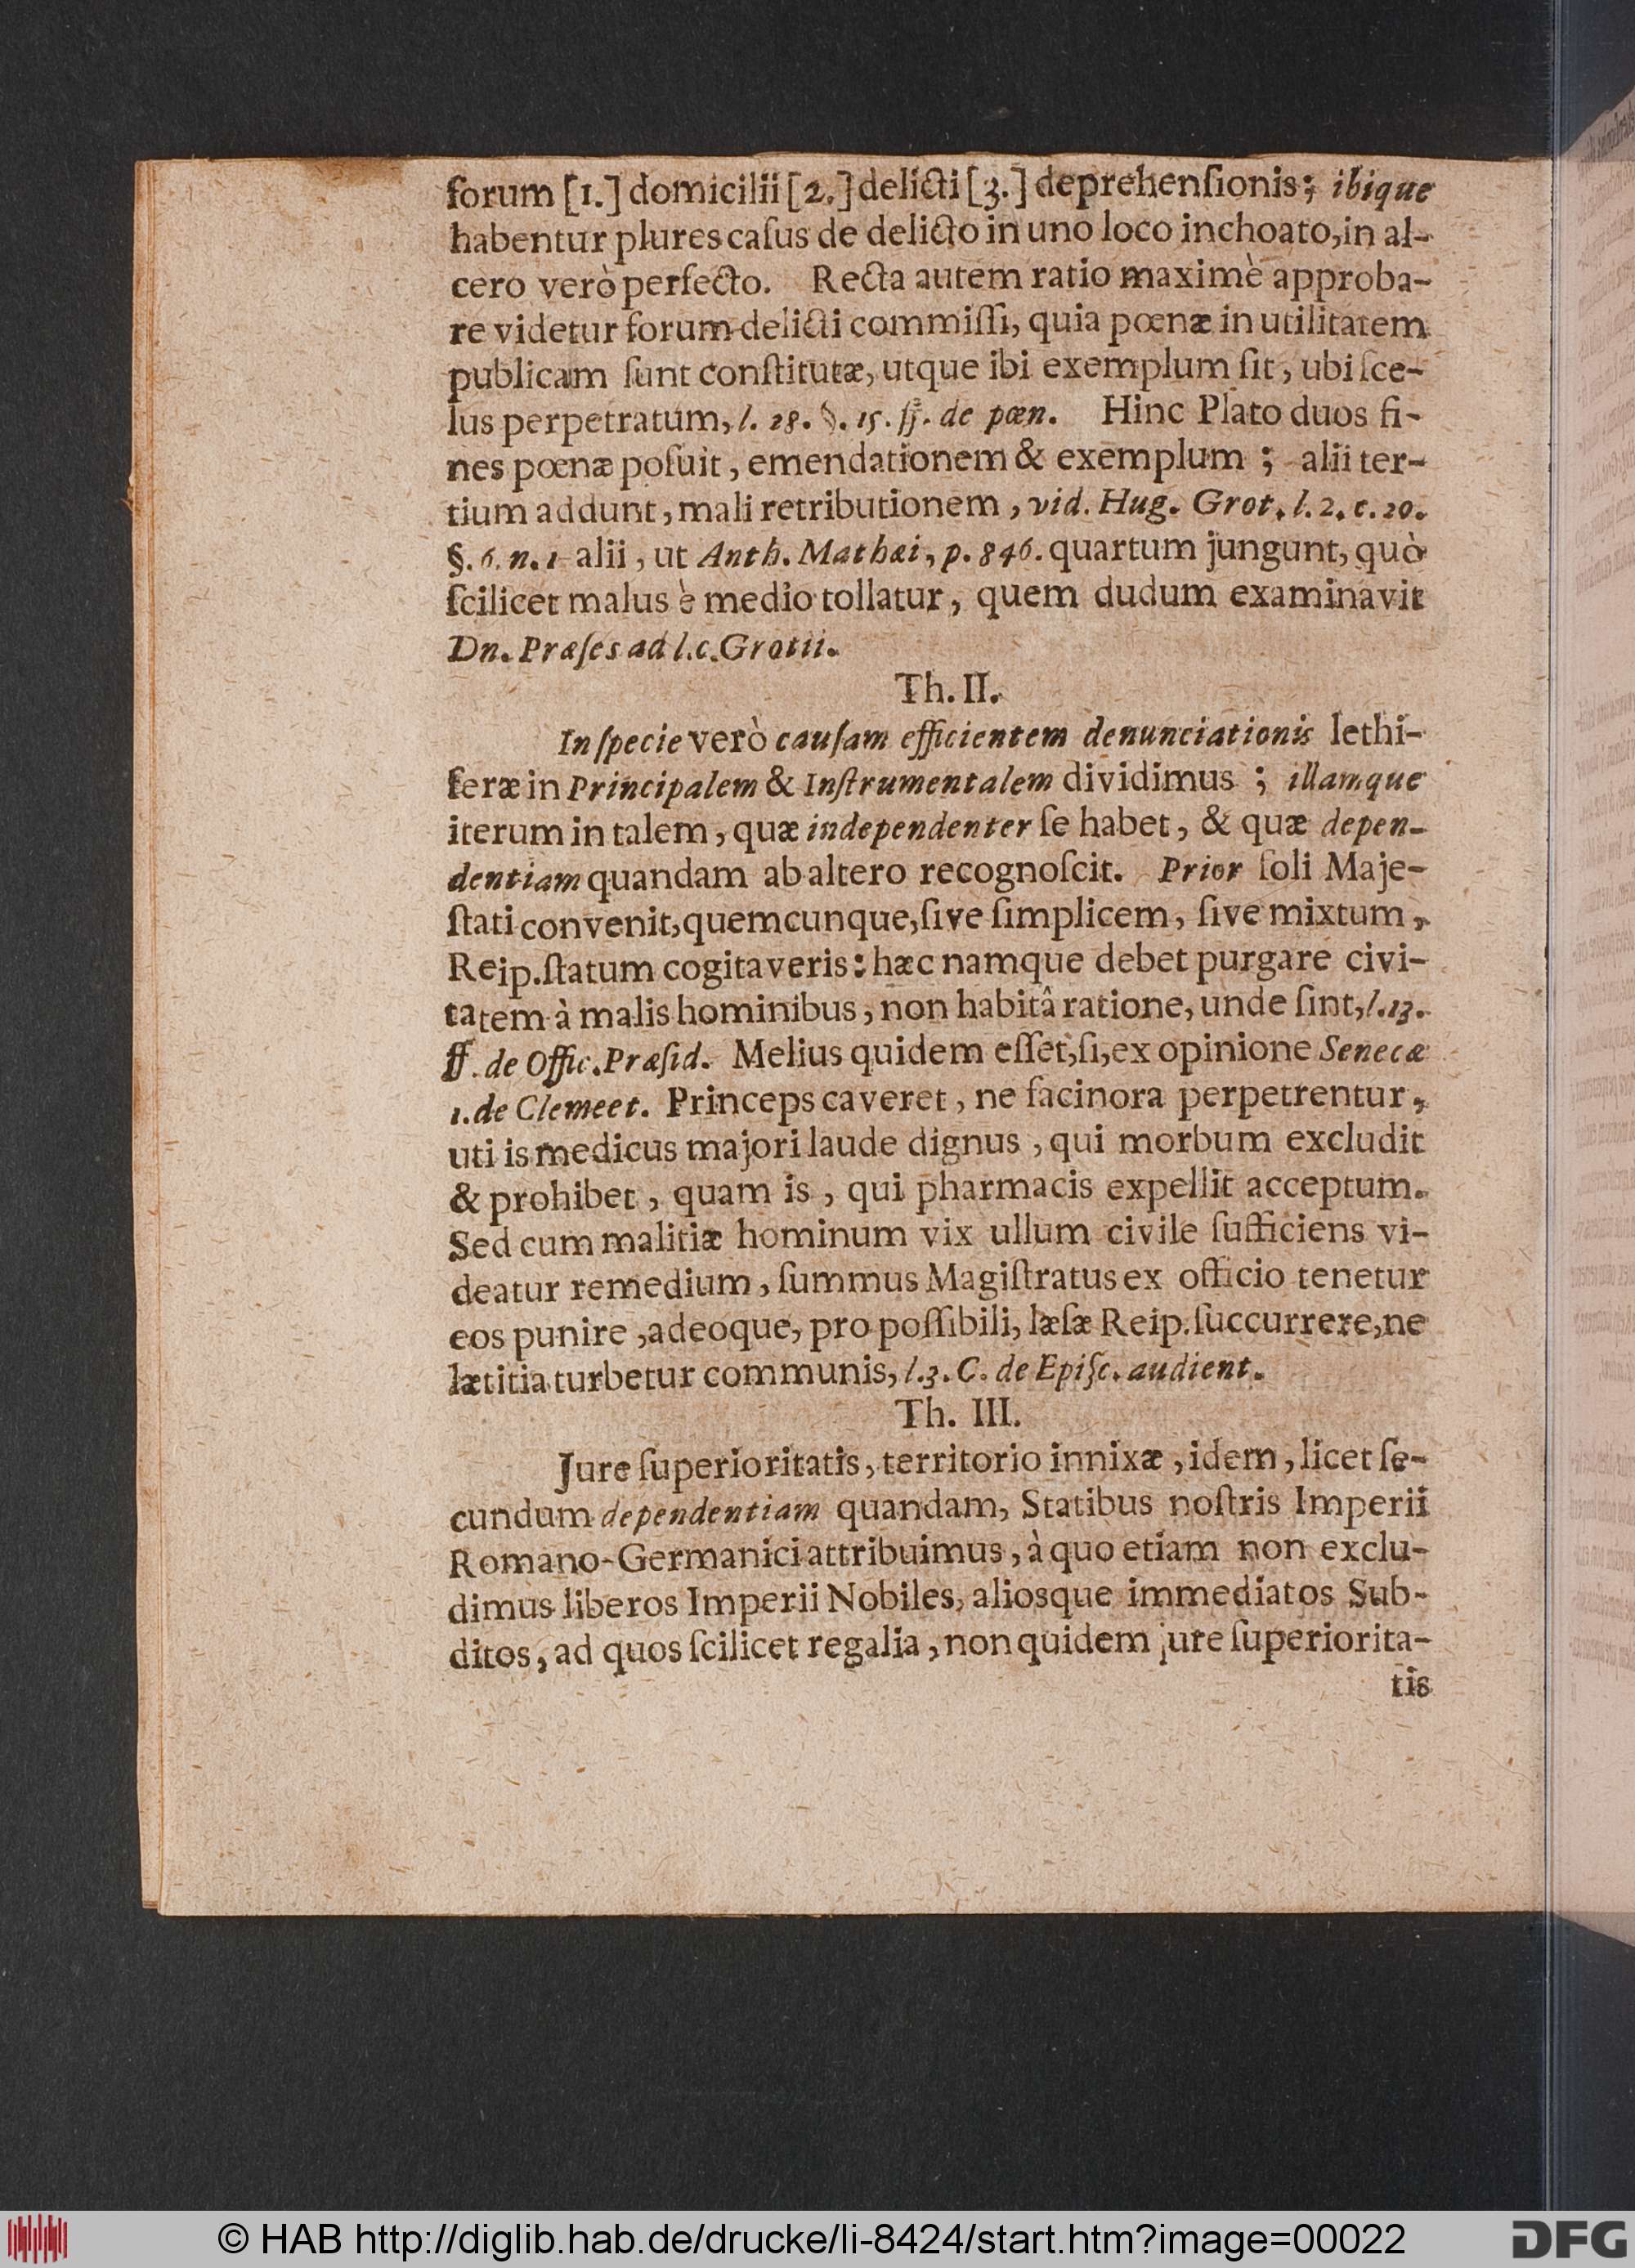 forum [1.] domicilii [2.] delicti [3.] deprehenſionis; ibique
habentur plures caſus de delicto in uno loco inchoato, in al-
cero verò perfecto. Recta autem ratio maximè approba-
re videtur forum delicti commiſſi, quia pœnæ in utilitatem
publicam ſunt conſtitutæ, utque ibi exemplum ſit, ubi ſce-
lus perpetratum, l. 28. §. 15. ff. de pœn. Hinc Plato duos fi-
nes pœnæ poſuit, emendationem & exemplum; alii ter-
tium addunt, mali retributionem, vid. Hug. Grot. l. 2. c. 20.
§. 6. n. 1 alii, ut Anth. Mathæi, p. 846. quartum jungunt, quò
ſcilicet malus è medio tollatur, quem dudum examinavit
Dn. Præſes ad l. c. Grotii.
Th. II.
In ſpecie verò cauſam efficientem denunciationis lethi-
feræ in Principalem & Inſtrumentalem dividimus; illamque
iterum in talem, quæ independenter ſe habet, & quæ depen-
dentiam quandam ab altero recognoſcit. Prior ſoli Maje-
ſtati convenit, quemcunque, ſive ſimplicem, ſive mixtum,
Reip. ſtatum cogitaveris: hæc namque debet purgare civi-
tatem à malis hominibus, non habitâ ratione, unde ſint, l. 13.
ff. de Offic. Præſid. Melius quidem eſſet, ſi, ex opinione Senecæ
1. de Clemeet. Princeps caveret, ne facinora perpetrentur,
uti is medicus majori laude dignus, qui morbum excludit
& prohibet, quam is, qui pharmacis expellit acceptum.
Sed cum malitiæ hominum vix ullum civile ſufficiens vi-
deatur remedium, ſummus Magiſtratus ex officio tenetur
eos punire, adeoque, pro poſſibili, læſæ Reip. ſuccurrere, ne
lætitia turbetur communis, l. 3. C. de Epiſc. audient.
Th. III.
Jure ſuperioritatis, territorio innixæ, idem, licet ſe-
cundum dependentiam quandam, Statibus noſtris Imperii
Romano-Germanici attribuimus, à quo etiam non exclu-
dimus liberos Imperii Nobiles, aliosque immediatos Sub-
ditos, ad quos ſcilicet regalia, non quidem jure ſuperiorita-
tis
© HAB http://diglib.hab.de/drucke/li-8424/start.htm?image=00022
DFG